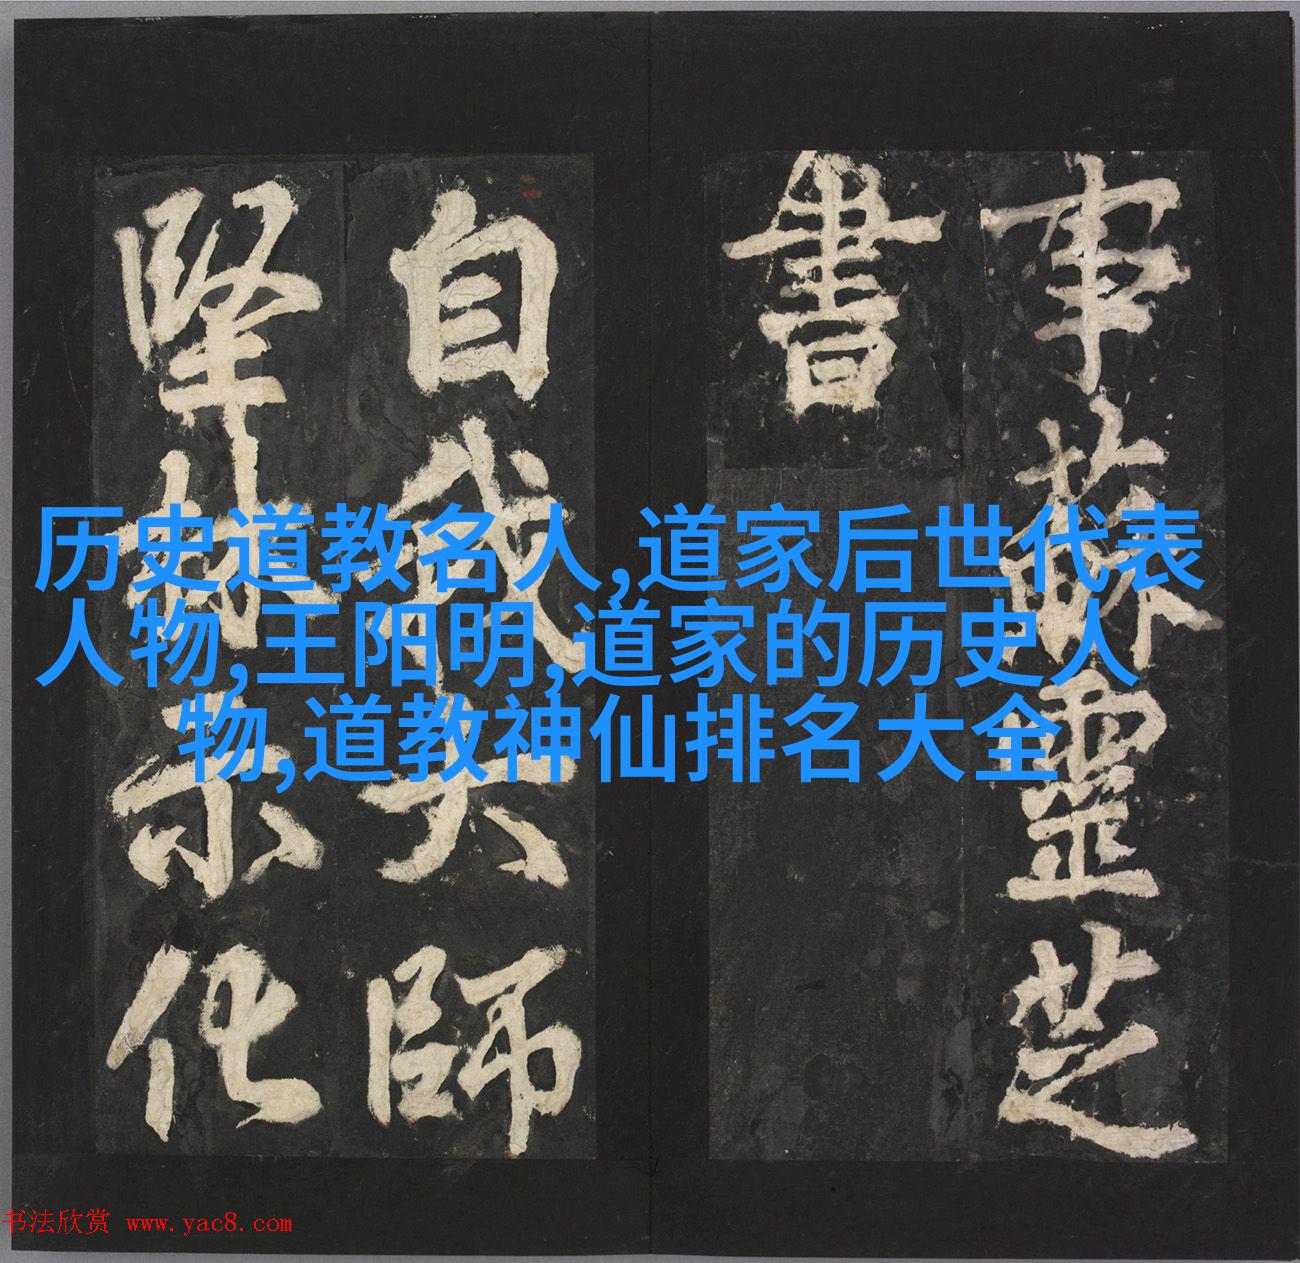 事蘇靈芝
書
自大師
堅示化
历史道教名人,道家后世代表
人物,王阳明,道家的历史人
物,道教神仙排名大全
书法欣赏 www.yac8.com